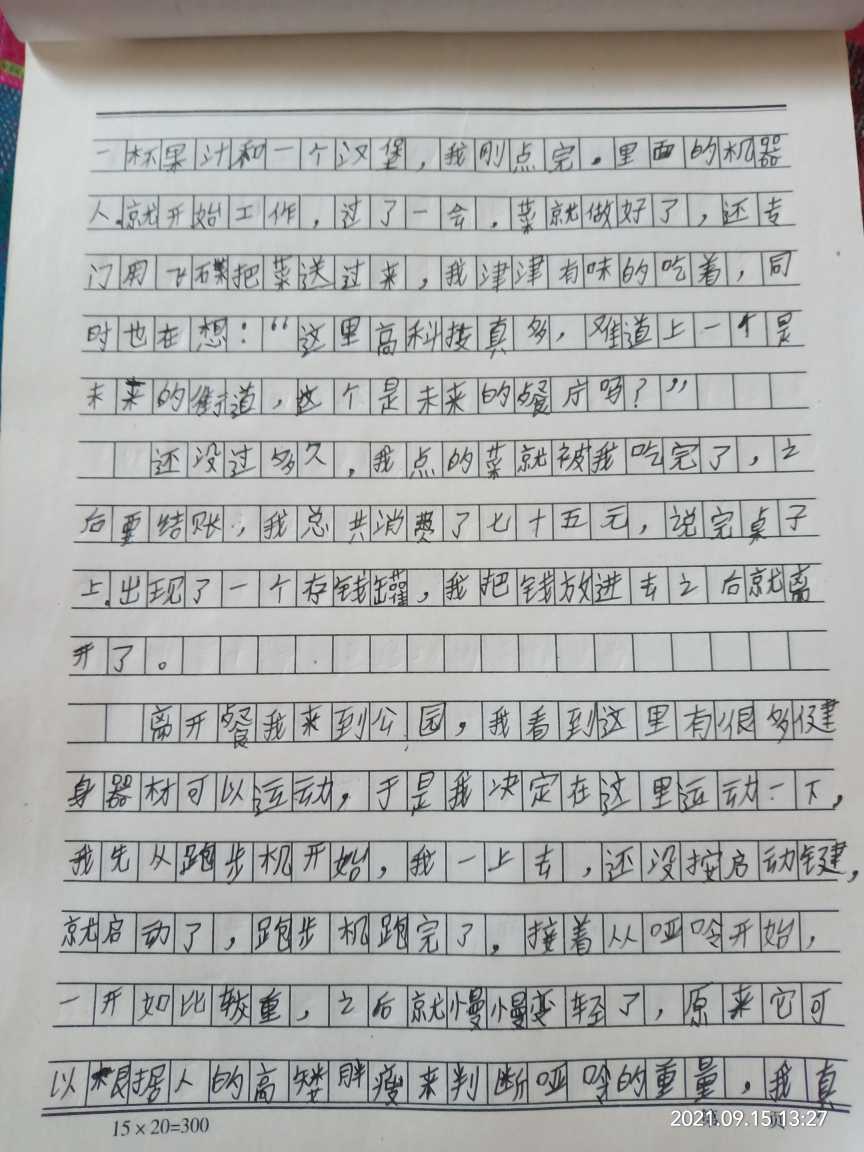 一杯果汁和一个汉堡，我刚点完。里面的机器
人.就开始工作，过了一会，菜就做好了，还专
门用飞碟把菜送过来，我津津有味的吃着，同
时也在想：“这里高科技真多，难道上一个是
未来的街道，这个是未来的餐厅吗？”
还没过多久，我点的菜就被我吃完了，之
后要结账，我总共消费了七十五元，说完桌子
上.出现了一个存钱罐，我把钱放进去之后就离
开了。
离开餐我来到公园，我看到这里有很多健
身器材可以运动，于是我决定在这里运动一下，
我先从跑步机开始，我一上去，还没按启动键，
就启动了，跑步机跑完了，接着从哑呤开始，
一开如比较重，之后就慢慢变轻了，原来它可
以根据人的高矮胖瘦来判断哑呤的重量，我真
15×20=300
第 页
2021.09.15 13:27